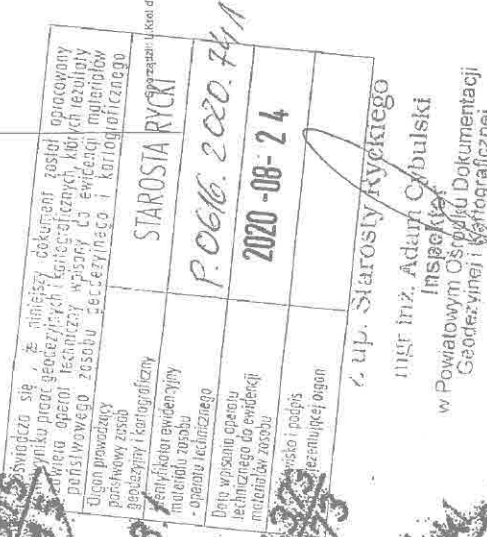 oświadcza się, że niniejszy dokument został opracowany
wyniku prac geodezyjnych i kartograficznych, których rezultaty
zawiera operat techniczny wpisany do ewidencji materiałów
państwowego zasobu geodezyjnego i kartograficznego
Organ prowadzący
państwowy zasób
geodezyjny i kartograficzny
STAROSTA RYCKI
Sporządził:
Identyfikator ewidencyjny
materiału zasobu
- operatu technicznego
P.0616.2020.741
Data wpisania operatu
technicznego do ewidencji
materiałów zasobu
2020 -08- 24
i podpis
organ
z up. Starosty Ryckiego
mgr inż. Adam Cybulski
Inspektor
w Powiatowym Ośrodku Dokumentacji
Geodezyjnej i Kartograficznej